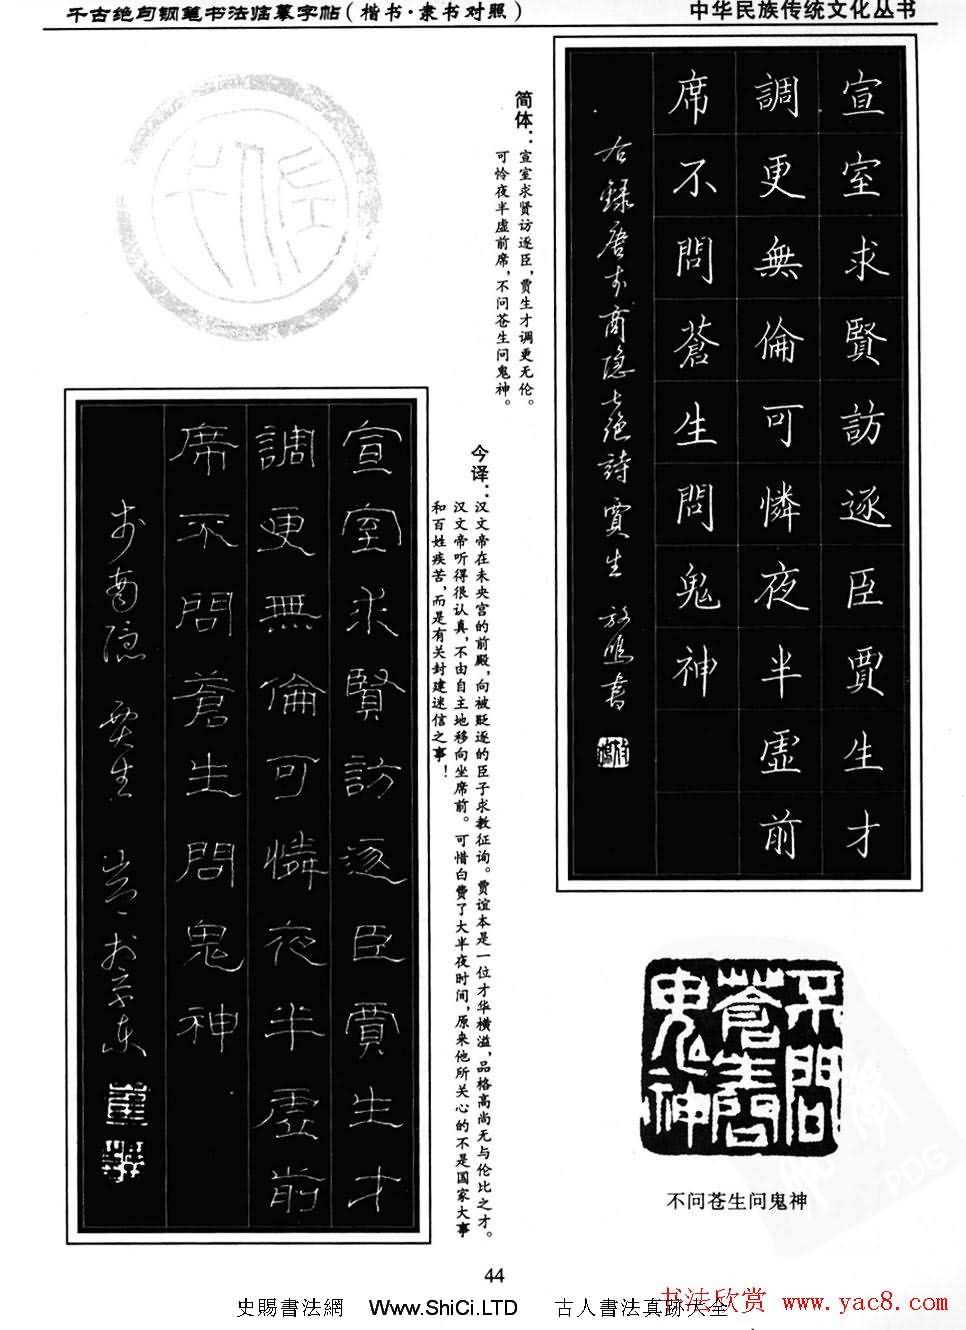 千古绝句钢笔书法临摹字帖(楷书·隶书对照)
中华民族传统文化丛书
宣室求賢訪逐臣賈生才
調更無倫可憐夜半虛前
席不問蒼生問鬼神
右錄唐李商隐七绝詩賈生 放鳴书
简体:
宣室求贤访逐臣,贾生才调更无伦。
可怜夜半虚前席,不问苍生问鬼神。
今译:
汉文帝在未央宫的前殿,向被贬逐的臣子求教征询。贾谊本是一位才华横溢,品格高尚无与伦比之才。
汉文帝听得很认真,不由自主地移向坐席前。可惜白费了大半夜时间,原来他所关心的不是国家大事
和百姓疾苦,而是有关封建迷信之事!
宣室求賢訪逐臣賈生才
調更無倫可憐夜半虛前
席不問蒼生問鬼神
李商隐 賈生
不問蒼生問鬼神
不问苍生问鬼神
44
史賜書法網 Www.ShiCi.LTD 古人書法真跡大全
书法欣赏 www.yac8.com
PDG